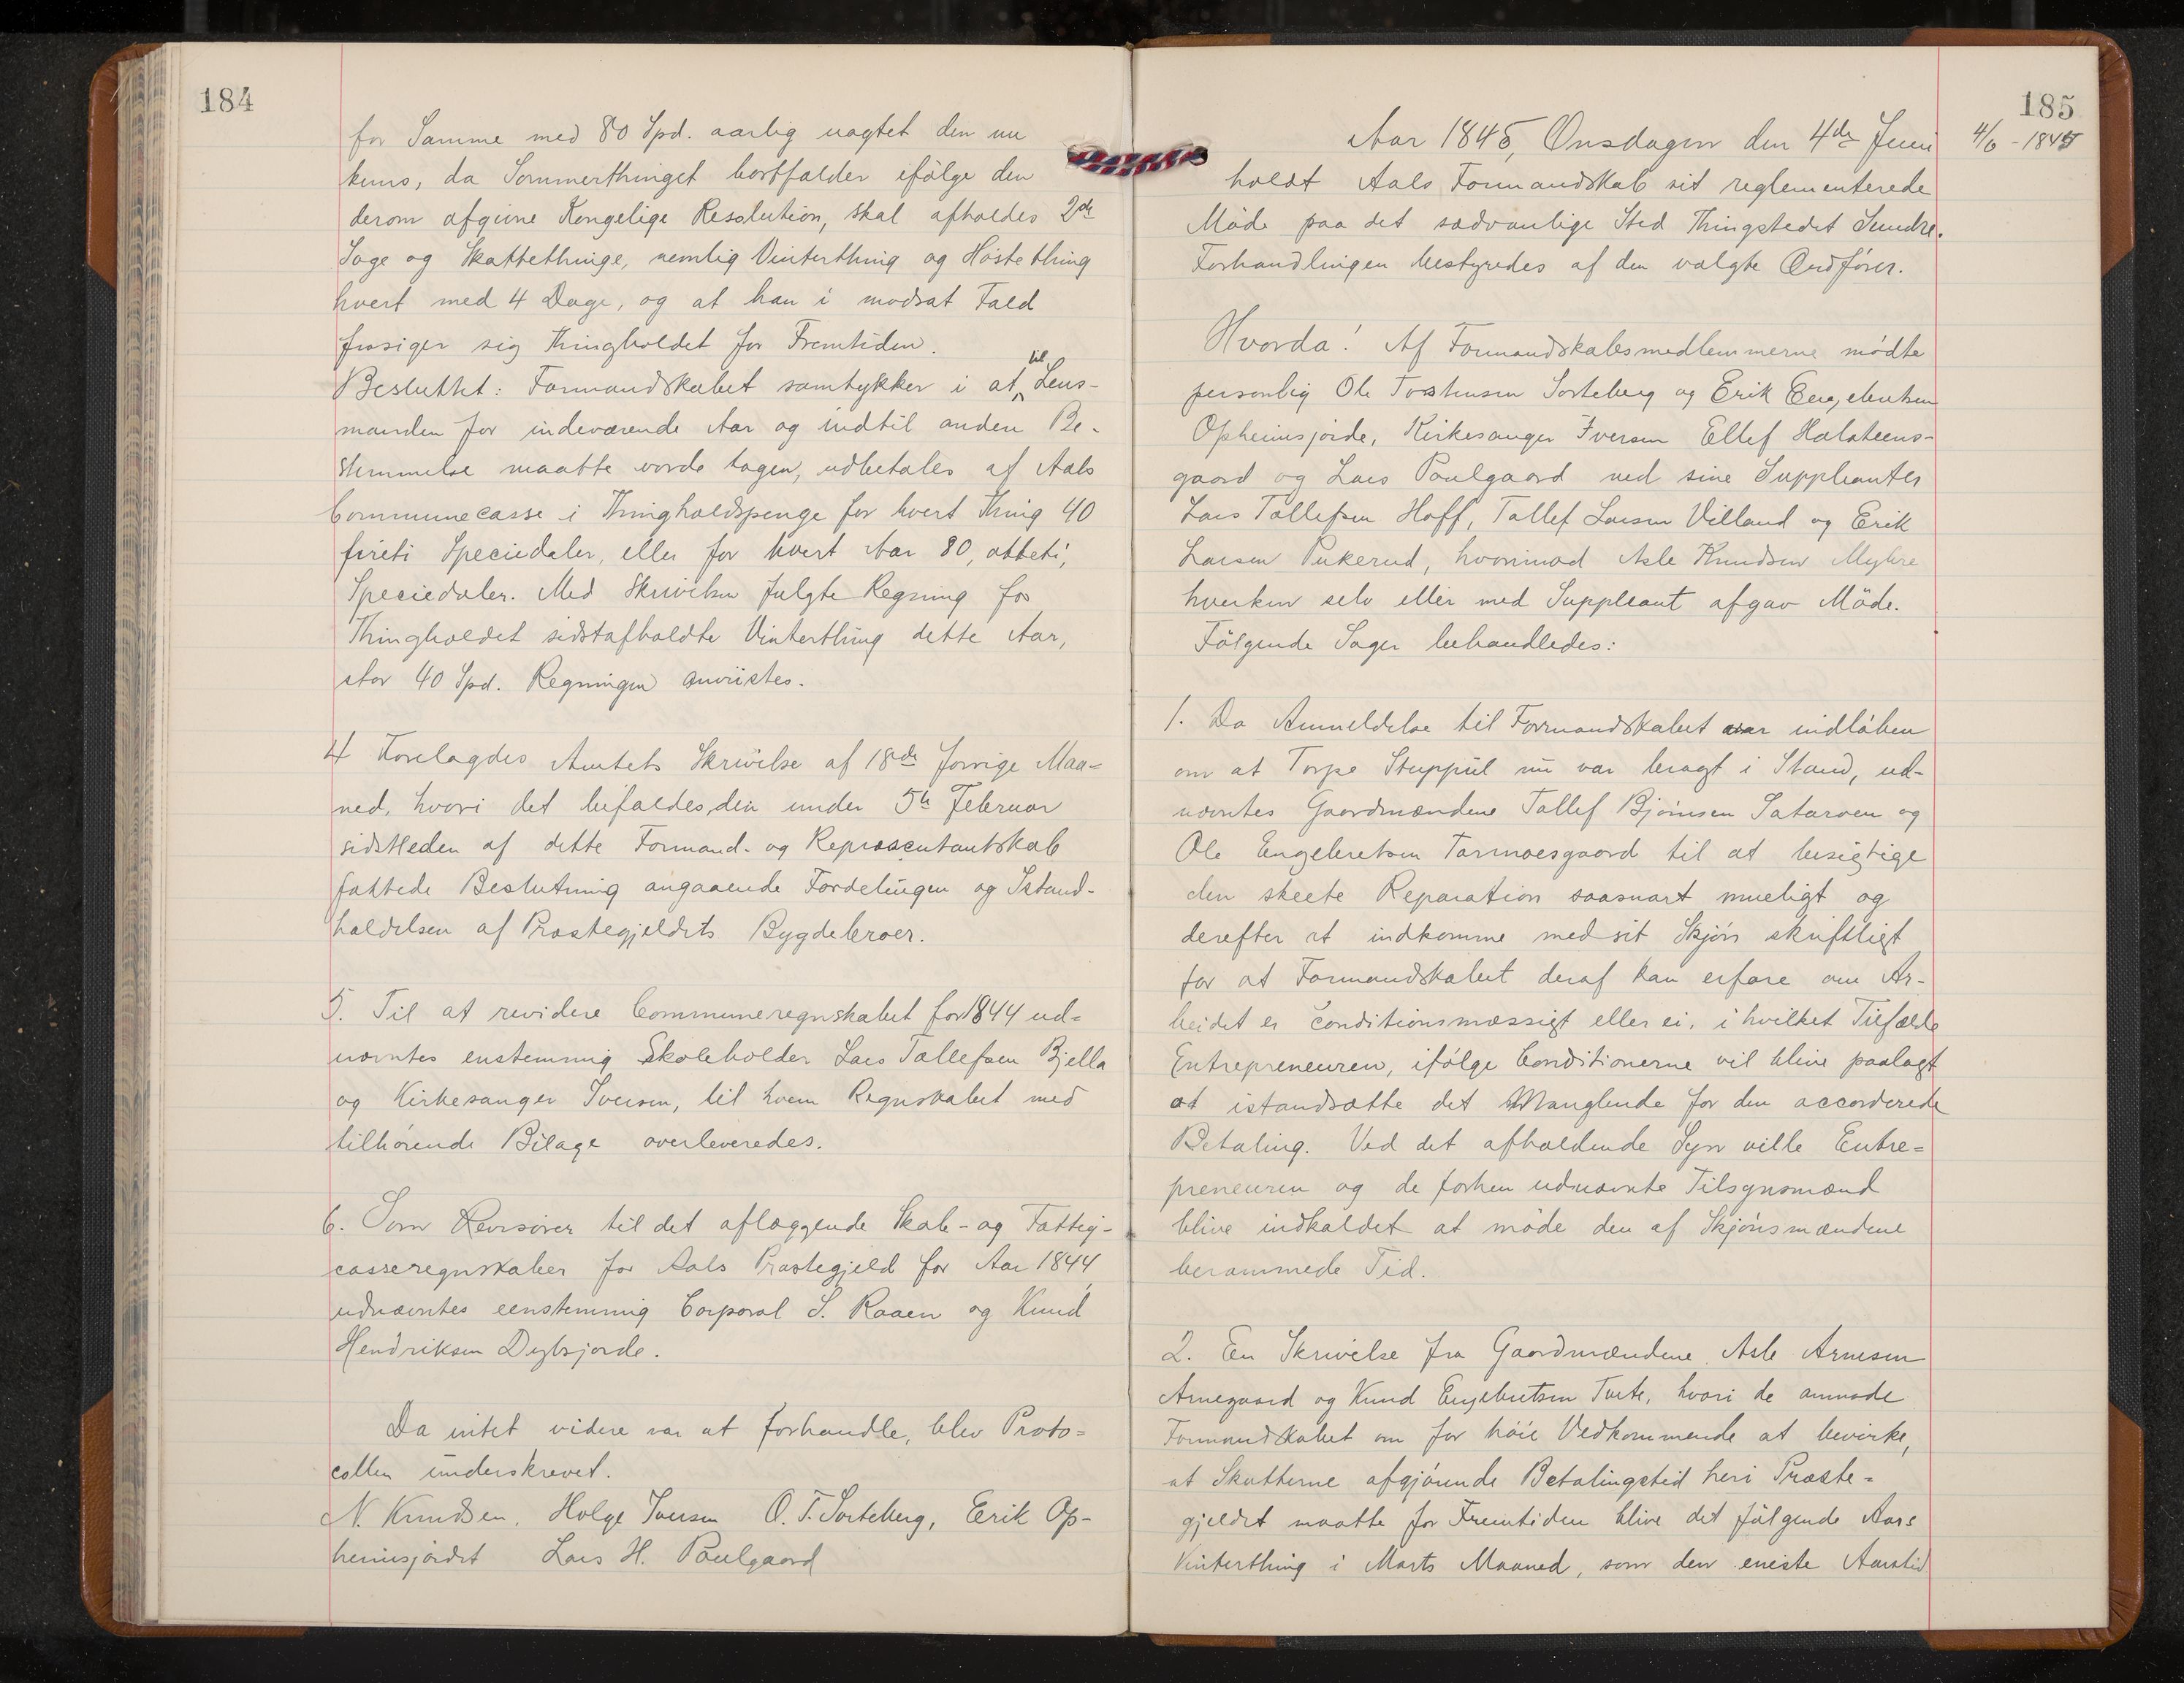 184
for Samme med 80 Spd. aarlig uagtet der nu
kuns, da Sommerthinget bortfalder ifølge den
derom afgivne Kongelige Resolution, skal afholdes 2de
Sage og Skattethinge, nemlig Vinterthing og Høstething
hvert med 4 Dage, og at han i modsat Fald
frasiger sig Thingholdet for Fremtiden.
Besluttet: Formandskabet samtykker i at til Lens-
manden for indeværende Aar og indtil anden Be-
stemmelse maatte vorde tagen, udbetales af Aals
Communecasse i Thingholdspenge for hvert Thing 40
firti Speciedaler, eller for hvert Aar 80, otteti,
Speciedaler. Med Skrivelsen fulgte Regning for
Thingholdet sidstafholdte Vinterthing dette Aar,
stor 40 Spd. Regningen anviistes.
4 Forelagdes Amtets Skrivelse af 18de forrige Maa=
ned, hvori det bifaldes, den under 5te Februar
sidstleden af dette Formand- og Repræsentantskab
fattede Beslutning angaaende Fordelingen og Istand-
holdelsen af Præstegjeldets Bygdebroer.
5. Til at revidere Communeregnskabet for 1844 ud=
nævntes enstemmig Skoleholder Lars Tollefsen Bjella
og Kirkesanger Iversen, til hvem Regnskabet med
tilhørende Bilage overleveredes.
6. Som Revisorer til det aflæggende Skole- og Fattig-
casseregnskaber for Aals Præstegjeld for Aar 1844,
udnævntes eenstemmig Corporal S. Raaen og Knud
Hendriksen Dybsjorde.
Da intet videre var at forhandle, blev Proto=
collen underskrevet.
N. Knudsen. Holge Iversen O. T. Sorteberg, Eerik Op-
heimsjordet Lars H. Poulgaard
185
4/6 - 1845
Aar 1845, Onsdagen den 4de Juni
holdt Aals Formandskab sit reglementerede
Møde paa det sædvanlige Sted Thingstedet Sundre.
Forhandlingen bestyredes af den valgte Ordfører.
Hvorda! Af Formandskabsmedlemmerne mødte
personlig Ole Torstensen Sorteberg og Erik Engebretsen
Opheimsjorde, Kirkesanger Iversen Ellef Halsteens-
gaard og Lars Poulgaard ved sine Suppleanter
Lars Tollefsen Hoff, Tollef Larsen Villand og Erik
Larsen Pukerud, hvorimod Asle Knudsen Myhre
hverken selv eller med Suppleant afgav Møde.
Følgende Sager behandledes:
1. Da Anmeldelse til Formandskabet var indløben
om at Torpe Stuppul nu var bragt i Stand, ud-
nævntes Gaardmændene Tollef Bjørnsen Sataroen og
Ole Engebretsen Tormoesgaard til at besigtige
den skeete Reparation saasnart mueligt og
derefter at indkomme med sit Skjøn skriftligt
for at Formandskabet deraf kan erfare om Ar-
beidet er conditionsmæssigt eller ei, i hvilket Tilfælde
Entrepreneuren, ifølge Conditionerne vil blive paalagt
at istandsætte det Manglende for den accorderede
Betaling. Ved det afholdende Syn ville Entre=
preneuren og de forhen udnævnte Tilsynsmænd
blive indkaldet at møde den af Skjønsmændene
berammede Tid.
2. En Skrivelse fra Gaardmændene Asle Arnesen
Arnegaard og Knud Engebretsen Tufte, hvori de anmode
Formandskabet om for høie Vedkommende at bevirke,
at Skatterne afgjørende Betalingstid heri Præste=
gjeldet maatte for Fremtiden blive det følgende Aars
Vinterthing i Marts Maaned, som den eneste Aarstid